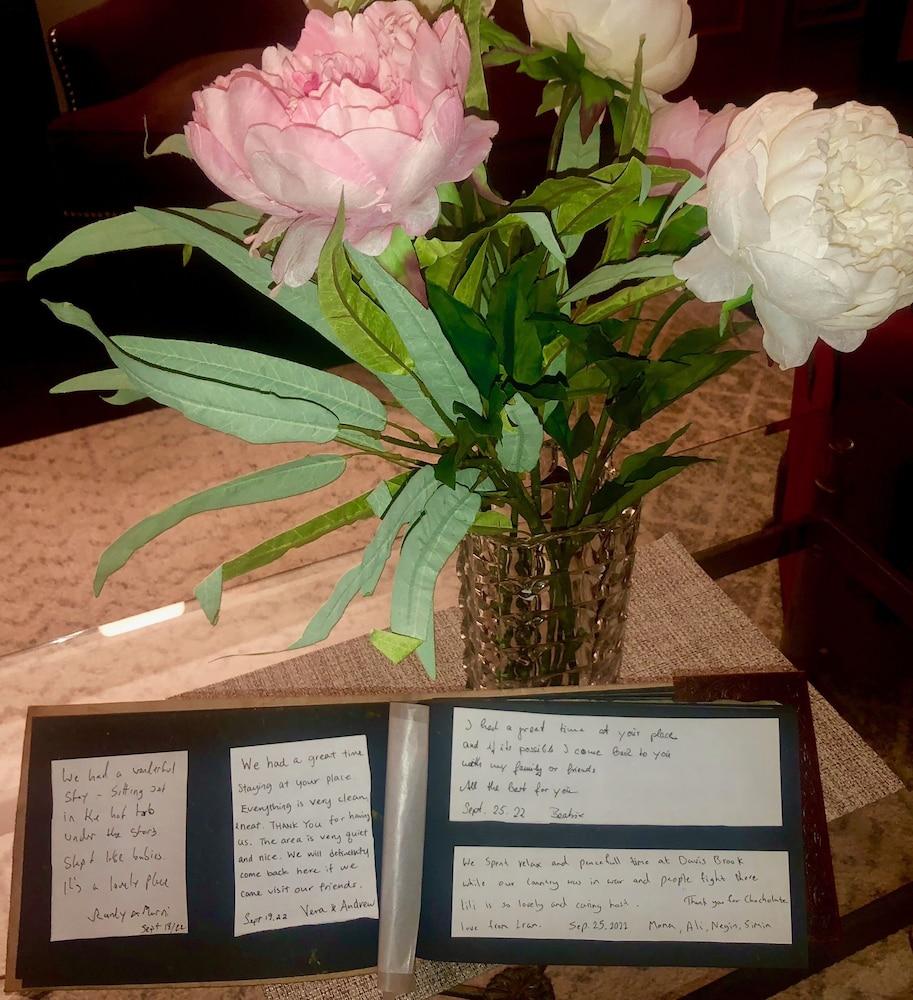 We had a wonderful
Stay - Sitting out
in the hot tob
under the stars
Slept like babies.
It's a lovely place
Sept 18/22
We had a great time
Staying at your place.
Everything is very clean
& neat. THANK YOU for having
us. The area is very quiet
and nice. We will definitely
come back here if we
came visit our friends.
Sept 19.22 Vera & Andrew
I had a great time at your place
and if its possible I come Back to you
with my family or friends
All the best for you
Sept. 25. 22 Beatrix
We Spent relax and peacefull time at Davis Brook
while our country was in war and people fight there
Lili is so lovely and caring host. Thank you for Chocholate
love from Iran. Sep. 25. 2022 Mona, Ali, Negin, Simin